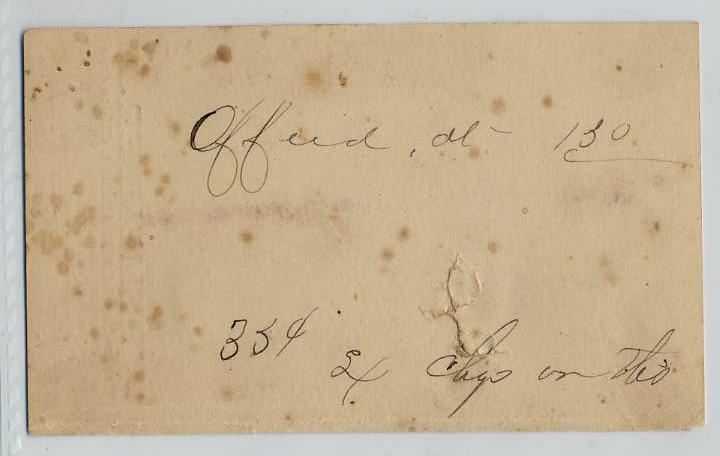 Offered, at 1 30
35¢
Ex chgs on this